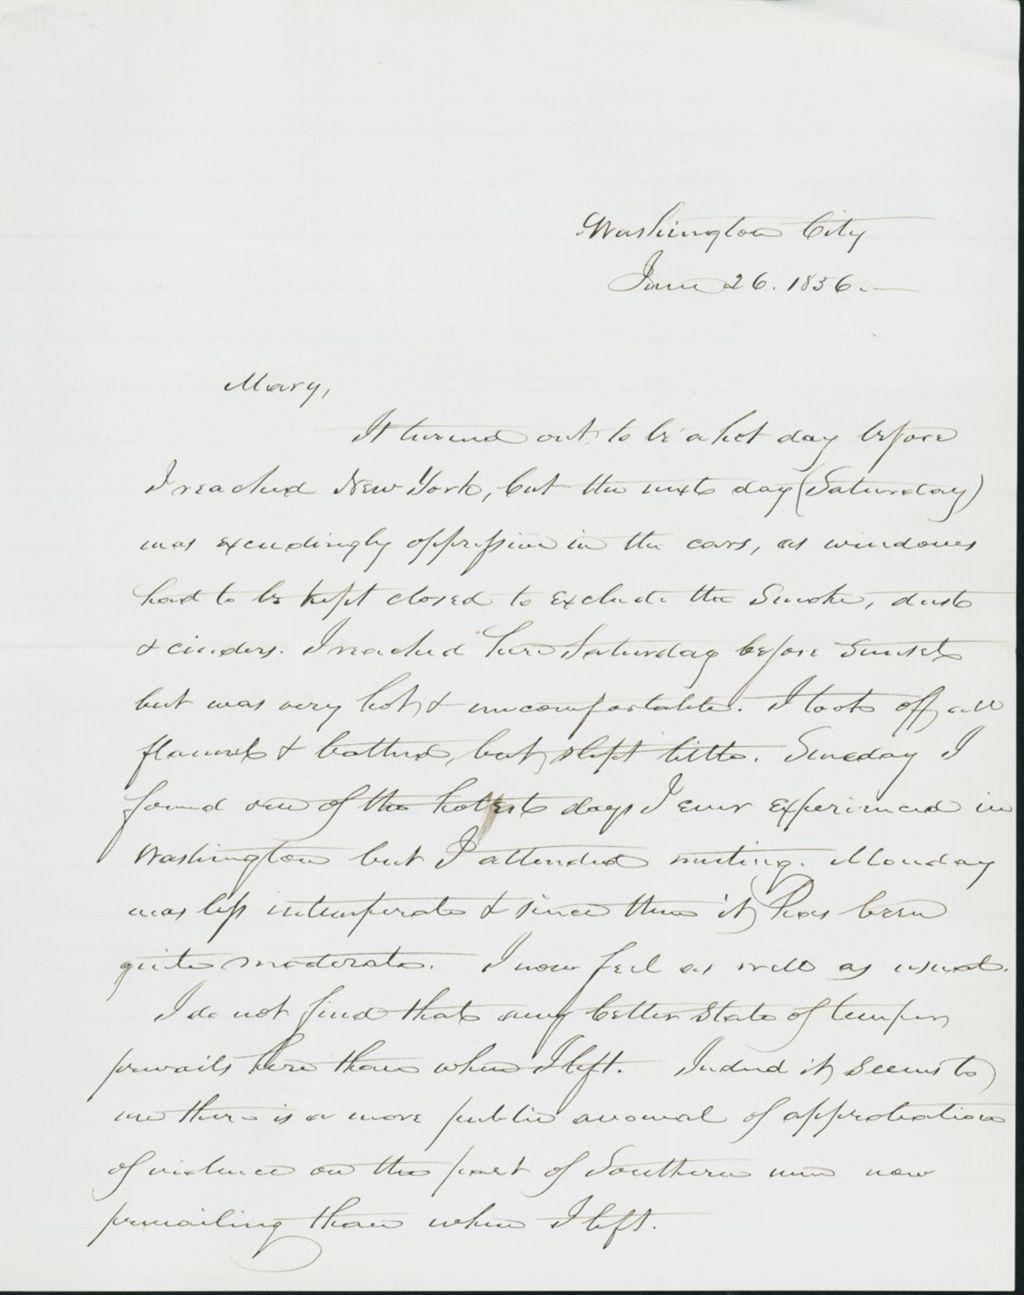 Washington City
June 26. 1856.
Mary,
It turned out to be a hot day before
I reached New York, but the next day (Saturday)
was exceedingly oppressive in the cars, as windows
had to be kept closed to exclude the smoke, dust
& cinders. I reached here Saturday before sunset
but was very hot & uncomfortable. I took off all
flannels & bathed, but slept little. Sunday I
found one of the hottest days I ever experienced in
Washington but I attended meeting. Monday
was less intemperate & since then it has been
quite moderate. I now feel as well as usual.
I do not find that any better state of temper
prevails here than when I left. Indeed it seems to
me there is a more public avowal of approbation
of violence on the part of Southern men now
prevailing than when I left.